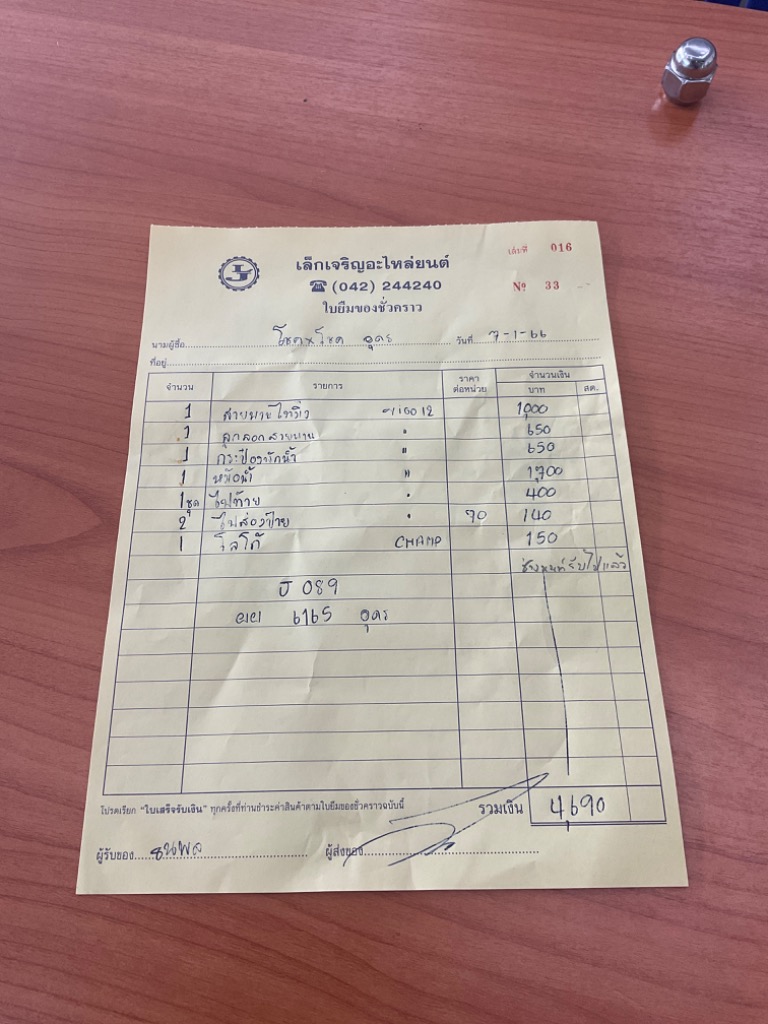 เล่มที่ 016
เล็กเจริญอะไหล่ยนต์
☎ (042) 244240
Nº 33
ใบยืมของชั่วคราว
นามผู้ซื้อ โชค x โชค อุดร วันที่ 7-1-66
ที่อยู่
จำนวน รายการ ราคาต่อหน่วย จำนวนเงิน บาท สต.
1 สายพานไทมิ่ง 1000
1 ลูกลอกสายพาน " 650
1 กระป๋องพักน้ำ " 650
1 หม้อน้ำ " 1,700
1 ชุด ไฟท้าย " 400
2 ไฟส่องป้าย " 70 140
1 โลโก้ CHAMP 150
รับไปแล้ว
J 089
6165 อุดร
โปรดเรียก "ใบเสร็จรับเงิน" ทุกครั้งที่ท่านชำระค่าสินค้าตามใบยืมของชั่วคราวฉบับนี้
รวมเงิน 4,690
ผู้รับของ ธนพล ผู้ส่งของ